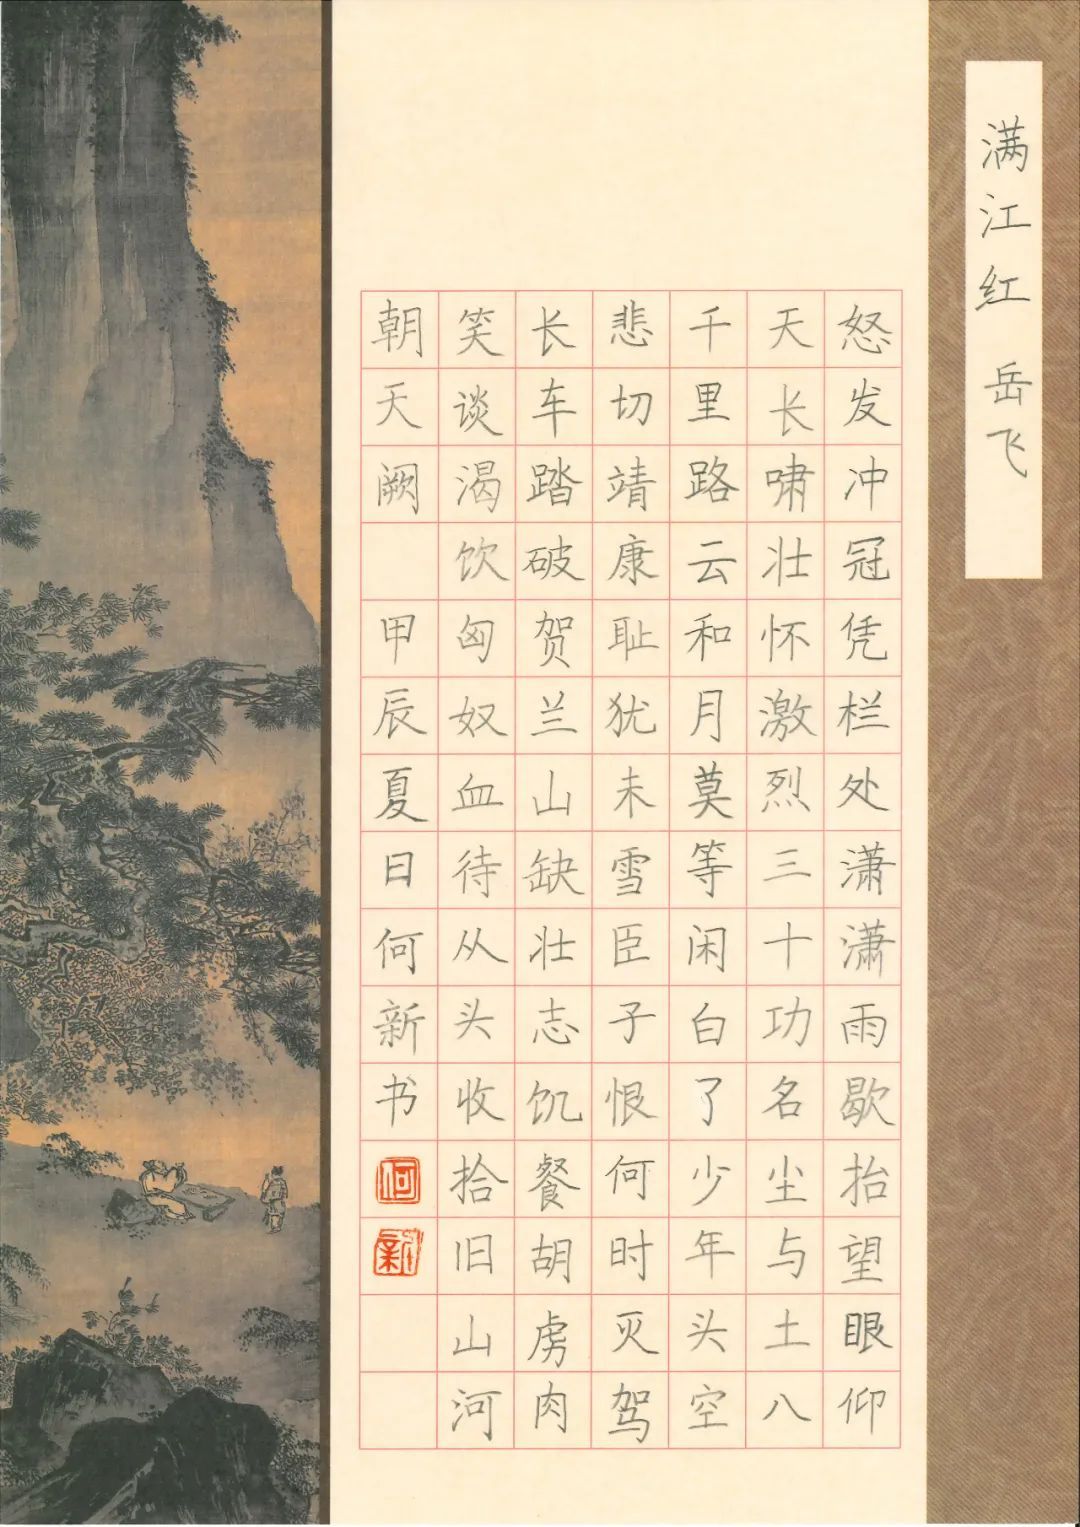 满江红 岳飞
怒发冲冠凭栏处潇潇雨歇抬望眼仰
天长啸壮怀激烈三十功名尘与土八
千里路云和月莫等闲白了少年头空
悲切靖康耻犹未雪臣子恨何时灭驾
长车踏破贺兰山缺壮志饥餐胡虏肉
笑谈渴饮匈奴血待从头收拾旧山河
朝天阙 甲辰夏日何新书
何
新